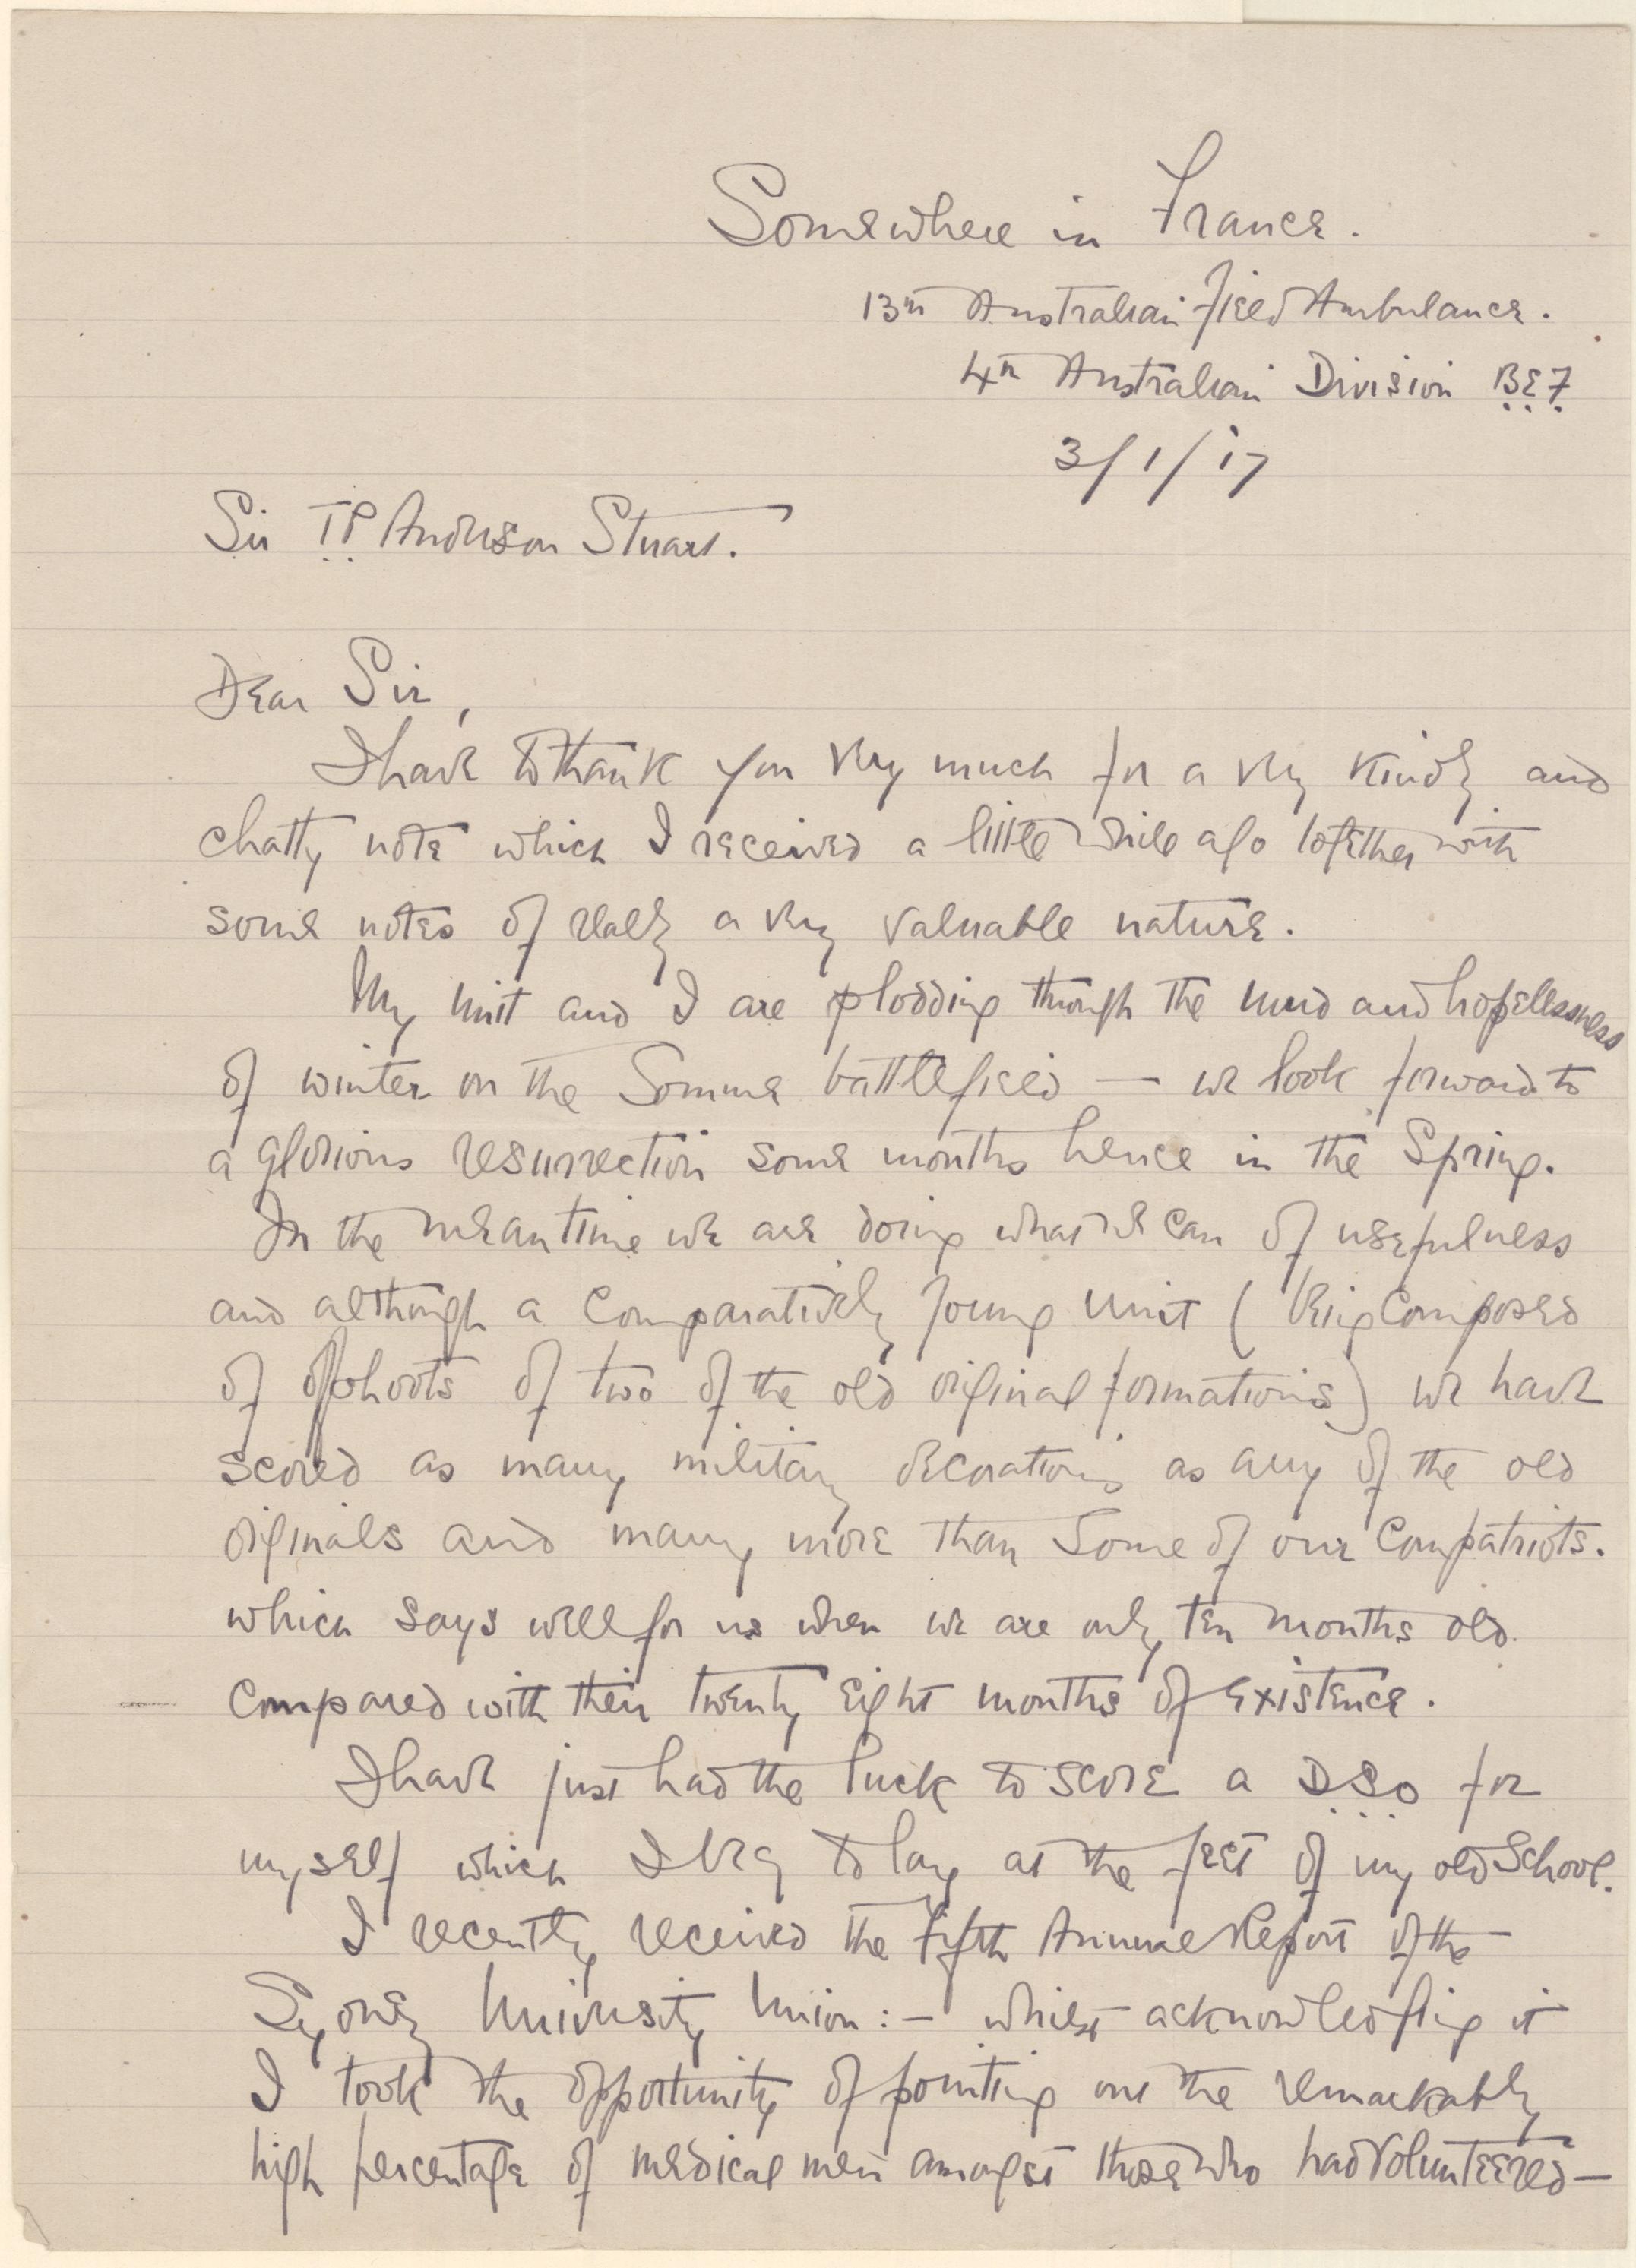 Somewhere in France.
13th Australian Field Ambulance.
4th Australian Division B.E.F.
3/1/17
Sir T.P. Anderson Stuart.
Dear Sir,
I have to thank you very much for a very kindly and
chatty note which I received a little while ago together with
some notes of really a very valuable nature.
My unit and I are plodding through the mud and hopelessness
of winter on the Somme battlefield — we look forward to
a glorious resurrection some months hence in the Spring.
In the meantime we are doing what we can of usefulness
and although a comparatively young unit (being composed
of offshoots of two of the old original formations) we have
scored as many military decorations as any of the old
originals and many more than some of our compatriots.
which says well for us when we are only ten months old
compared with their twenty eight months of existence.
I have just had the luck to score a D.S.O for
myself which I beg to lay at the feet of my old School.
I recently received the Fifth Annual Report of the
Sydney University Union :— whilst acknowledging it
I took the opportunity of pointing out the remarkably
high percentage of medical men amongst those who had volunteered —